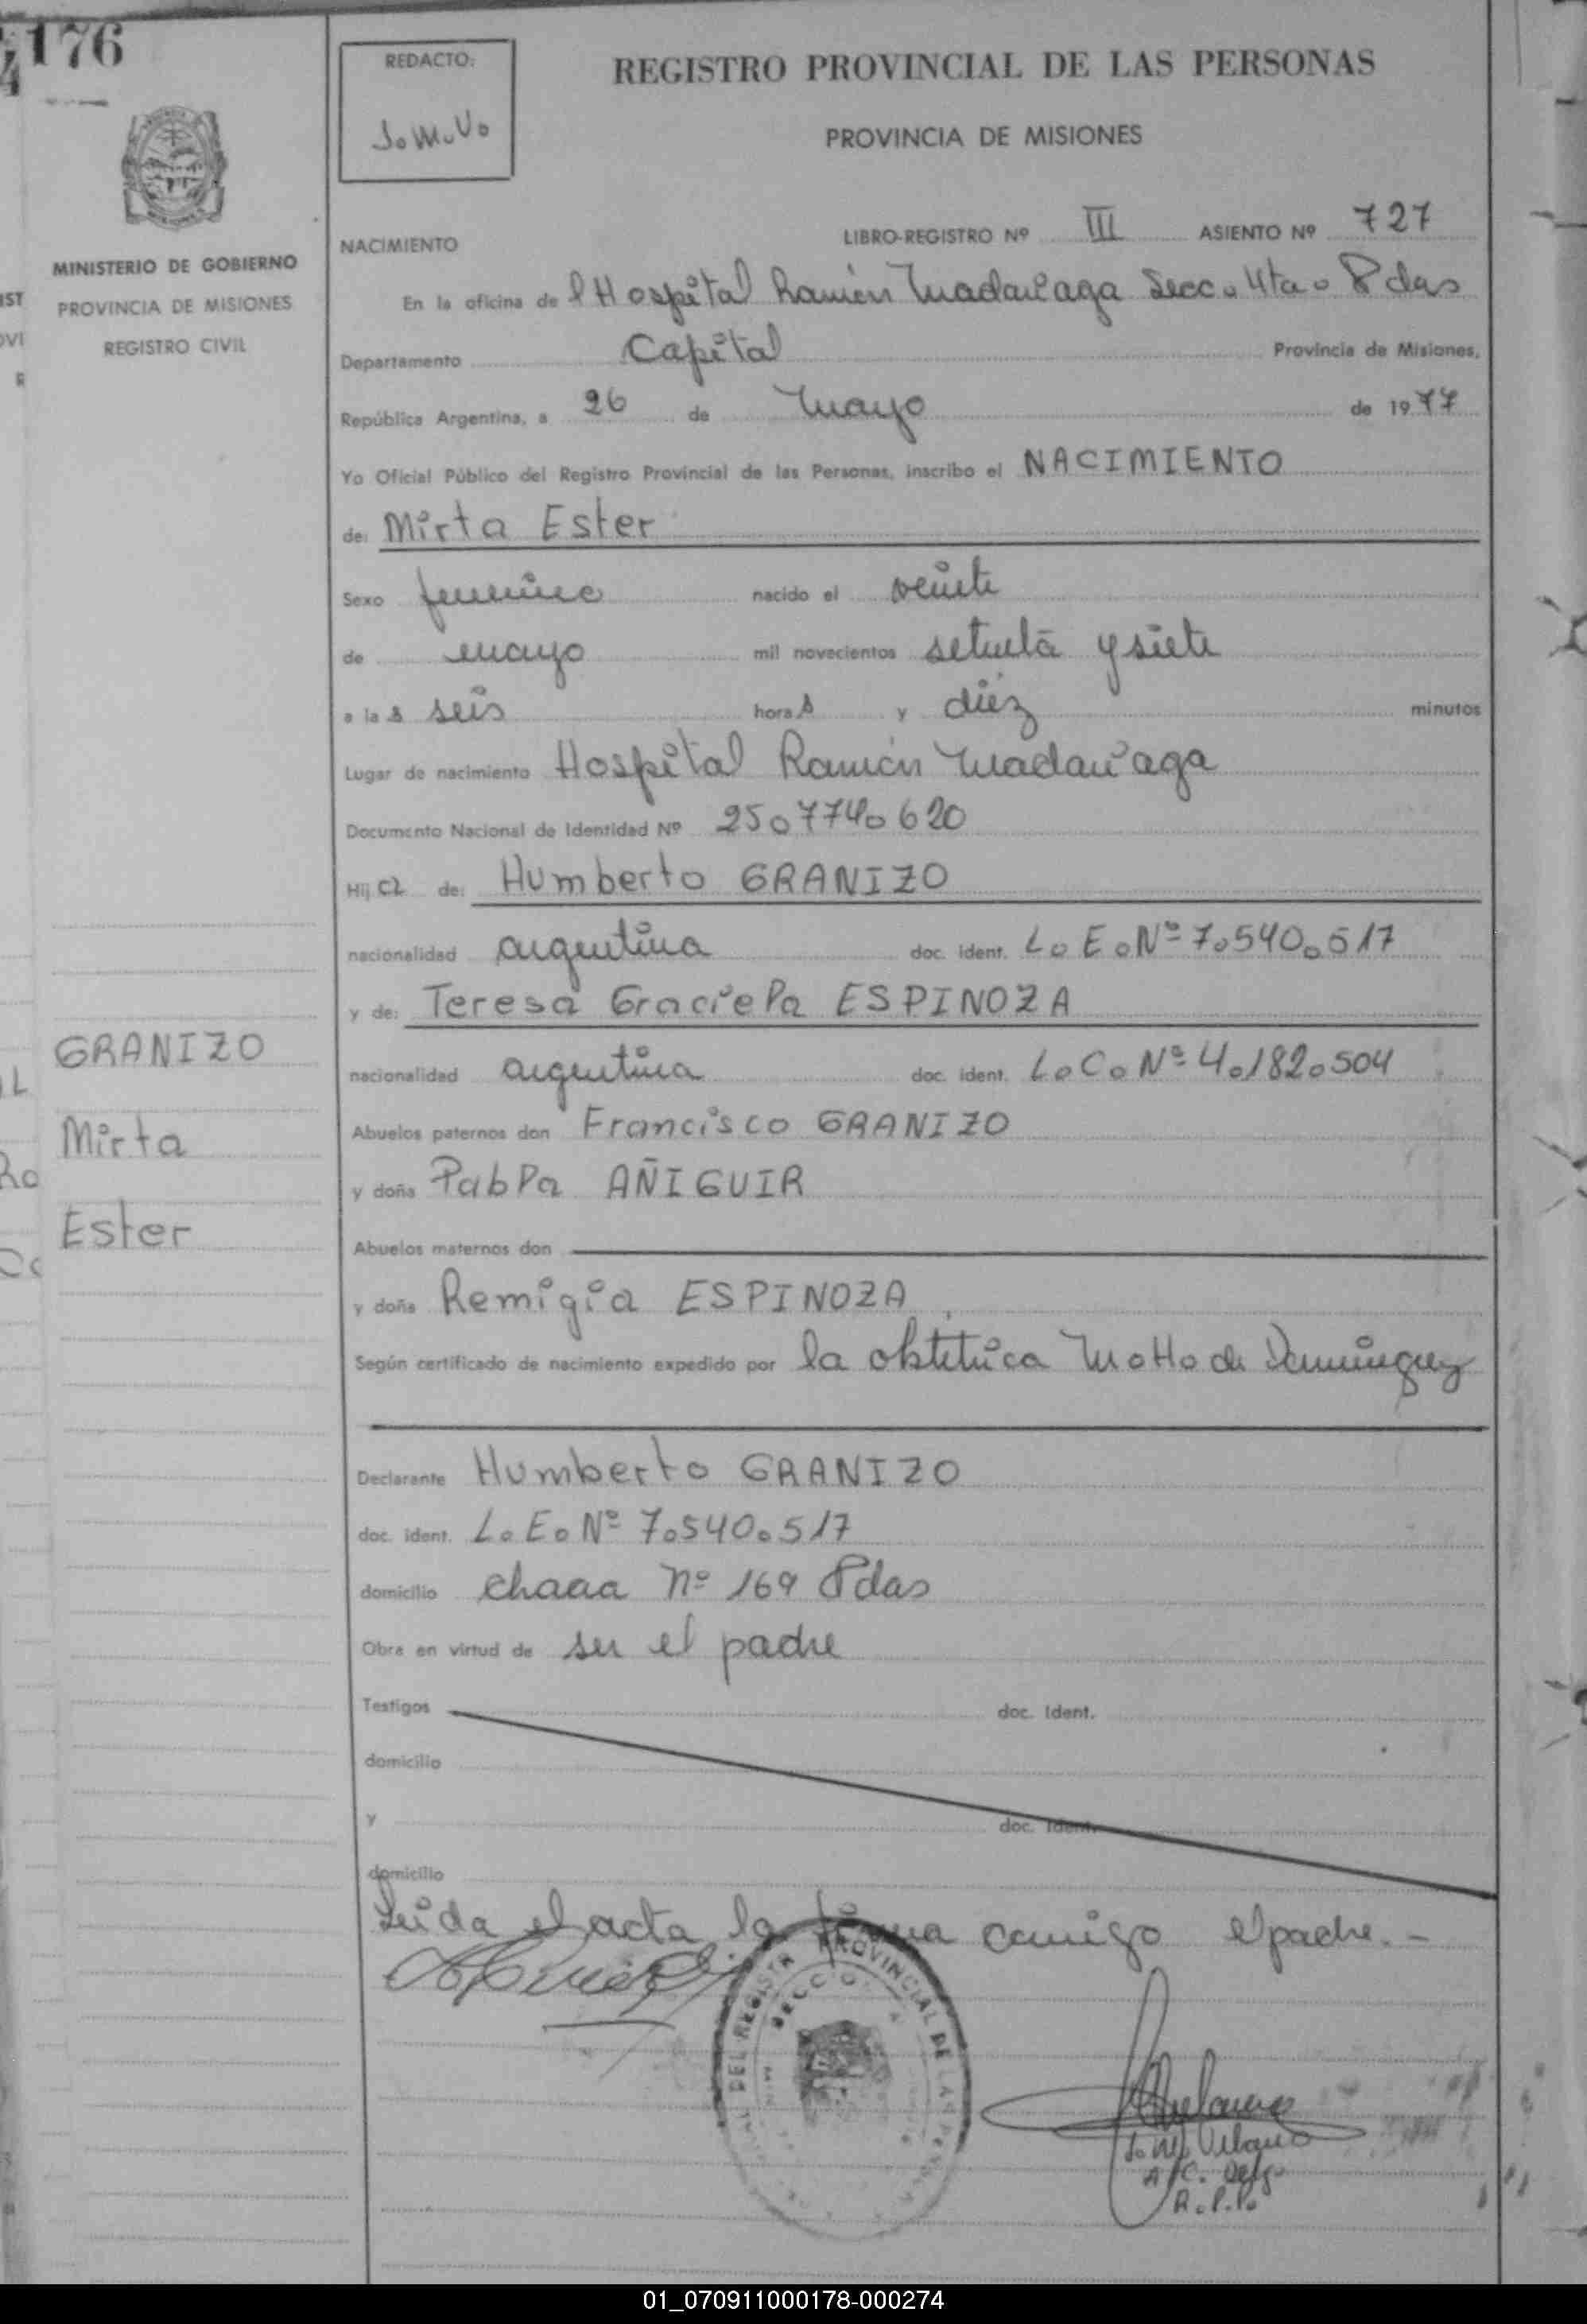 176
REDACTO:
J.M.V.
REGISTRO PROVINCIAL DE LAS PERSONAS
PROVINCIA DE MISIONES
MINISTERIO DE GOBIERNO
PROVINCIA DE MISIONES
REGISTRO CIVIL
NACIMIENTO
LIBRO-REGISTRO Nº III ASIENTO Nº 727
En la oficina del Hospital Ramón Madariaga Secc. 4ta. Pdas
Departamento Capital Provincia de Misiones,
República Argentina, a 26 de Mayo de 1977
Yo Oficial Público del Registro Provincial de las Personas, inscribo el NACIMIENTO
de: Mirta Ester
Sexo femenino nacido el veinte
de mayo mil novecientos setenta y siete
a las seis horas y diez minutos
Lugar de nacimiento Hospital Ramón Madariaga
Documento Nacional de Identidad Nº 25.774.620
Hija de: Humberto GRANIZO
nacionalidad argentina doc. ident. L.E.Nº 7.540.517
y de: Teresa Graciela ESPINOZA
nacionalidad argentina doc. ident. L.C.Nº 4.182.504
Abuelos paternos don Francisco GRANIZO
y doña Pabla AÑIGUIR
Abuelos maternos don
y doña Remigia ESPINOZA
Según certificado de nacimiento expedido por la obstetrica Motto de Dominguez
Declarante Humberto GRANIZO
doc. ident. L.E.Nº 7.540.517
domicilio chacra Nº 169 Pdas
Obra en virtud de ser el padre
Testigos doc. Ident.
domicilio
y doc. Ident.
domicilio
Leida el acta la firma conmigo el padre.-
GRANIZO
Mirta
Ester
DEL REGISTRO PROVINCIAL DE LAS PERSONAS
A/C. Deleg.
R.P.P.
01_070911000178-000274